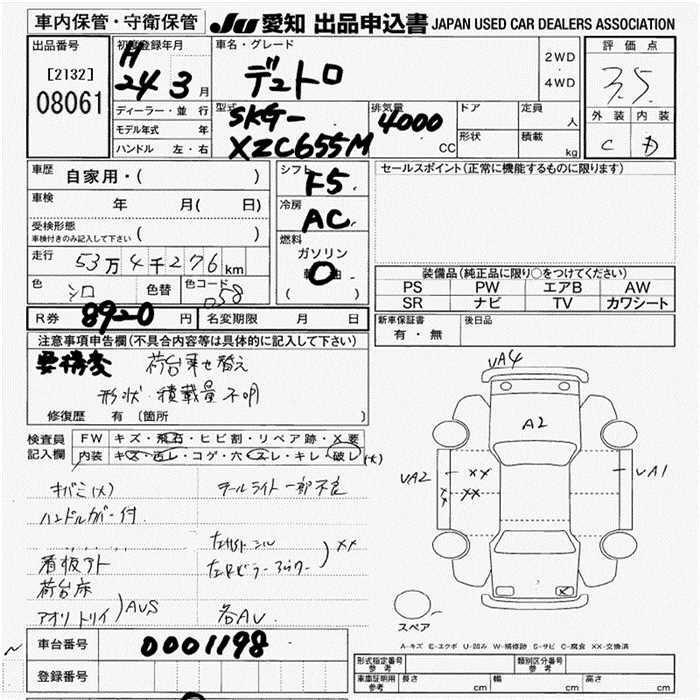 車内保管・守衛保管 JU 愛知 出品申込書 JAPAN USED CAR DEALERS ASSOCIATION
出品番号
[2132]
08061
初度登録年月
H
24 3 月
車名・グレード
デュトロ
2WD
・
4WD
評価点
3.5
外装 内装
C D
ディーラー・並行
モデル年式 年
ハンドル 左・右
型式
SKG-
XZC655M
排気量
4000
CC
ドア
形状
定員
人
積載
kg
車歴
自家用・( )
車検
年 月( 日)
受検形態
車検付きのみ記入して下さい ( )
走行
53万4千276km
色
シロ
色替
色コード
058
シフト
F5
冷房
AC
燃料
ガソリン
軽油
( )
セールスポイント(正常に機能するものに限ります)
装備品(純正品に限り○をつけてください)
PS PW エアB AW
SR ナビ TV カワシート
R券 8920 円
名変期限 月 日
新車保証書
有・無
後日品
注意事項申告欄(不具合内容等は具体的に記入して下さい)
要構変 荷台乗せ替え
形状・積載量不明
修復歴 有 (箇所 )
検査員
記入欄
FW キズ・飛石・ヒビ割・リペア跡・X要
内装 キズ・汚レ・コゲ・穴・スレ・キレ・破レ(大)
サバミ(大) テールライト一部不良
ハンドルカバー付
看板アト
荷台床
アオリトリイ ) AUS
) XX
各AU
VA4
A2
VA2
XX
XX
XX
VA1
スペア
A-キズ E-エクボ U-凹み W-補修跡 S-サビ C-腐食 XX-交換済
車台番号 0001198
登録番号
形式指定番号
参考
類別区分番号
参考
車庫証明用
参考
長さ cm
幅 cm
高さ cm